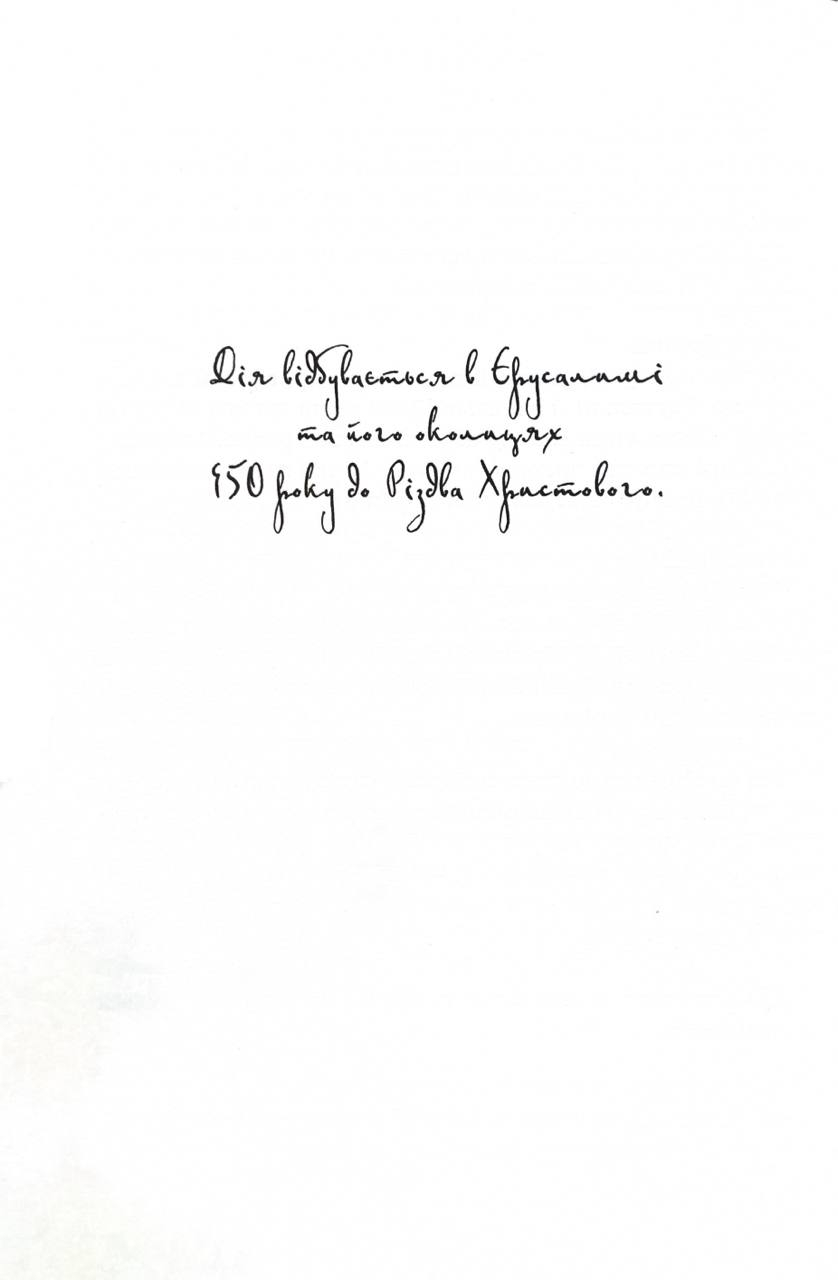 Дія відбувається в Єрусалимі
та його околицях
450 року до Різдва Христового.